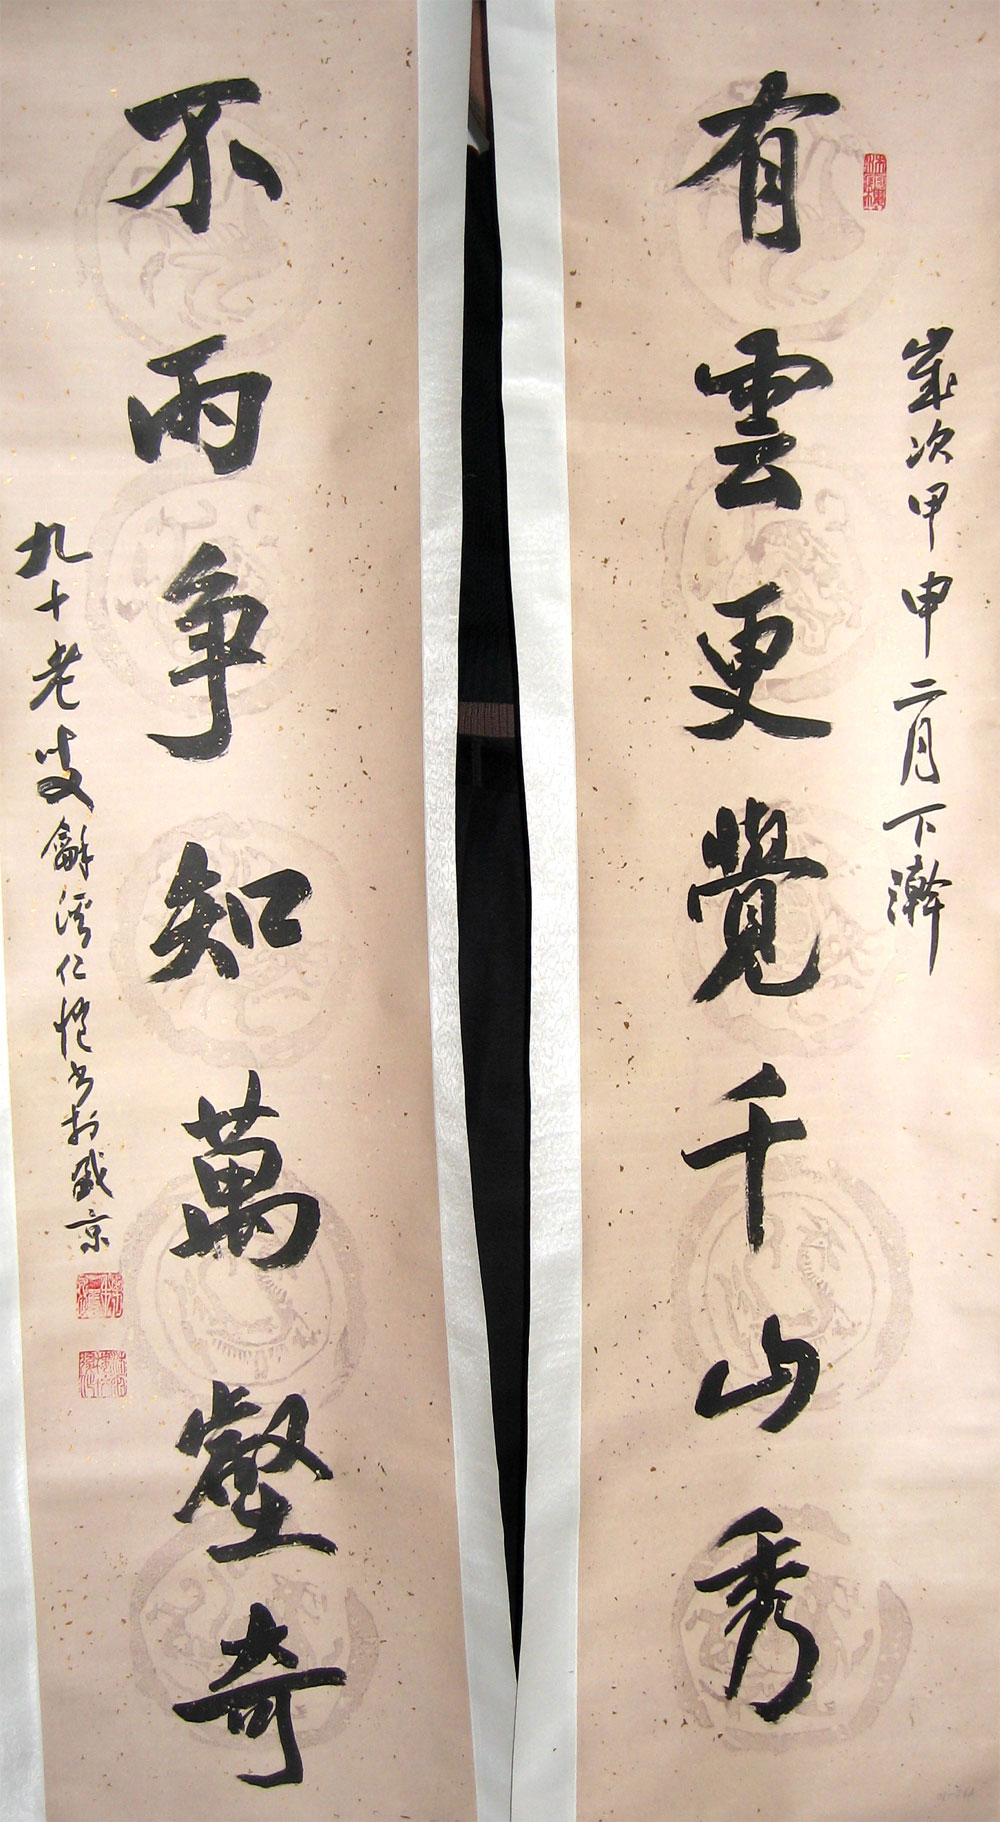 歲次甲申二月下澣
有雲更覺千山秀
不雨争知萬壑奇
九十老叟龢溪仁愷書於盛京